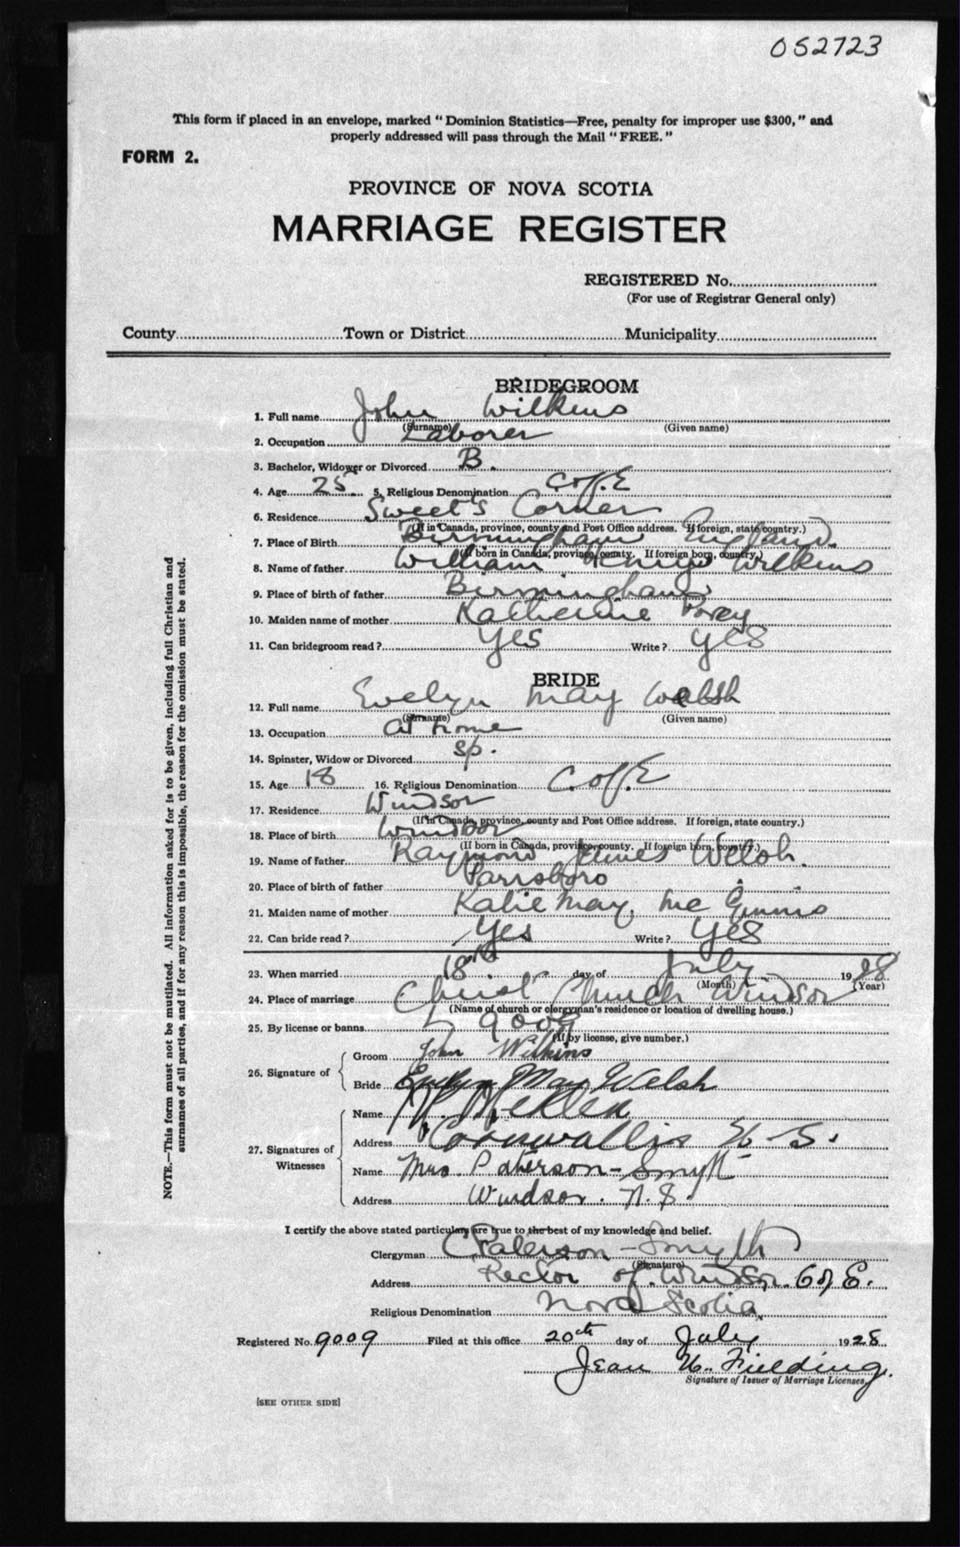 052723
This form if placed in an envelope, marked "Dominion Statistics—Free, penalty for improper use $300," and
properly addressed will pass through the Mail "FREE."
FORM 2.
PROVINCE OF NOVA SCOTIA
MARRIAGE REGISTER
REGISTERED No.
(For use of Registrar General only)
County Town or District Municipality
BRIDEGROOM
1. Full name John Wilkins
(Surname) (Given name)
2. Occupation Laborer
3. Bachelor, Widower or Divorced B.
4. Age 25 5. Religious Denomination C of E
6. Residence Sweet's Corner
(If in Canada, province, county and Post Office address. If foreign, state country.)
7. Place of Birth Birmingham England.
(If born in Canada, province, county. If foreign born, country.)
8. Name of father William Henry Wilkins
9. Place of birth of father Birmingham
10. Maiden name of mother Katherine
11. Can bridegroom read? Yes Write? Yes
BRIDE
12. Full name Evelyn May Welsh
(Surname) (Given name)
13. Occupation At home
14. Spinster, Widow or Divorced Sp.
15. Age 18 16. Religious Denomination C. of E
17. Residence Windsor
(If in Canada, province, county and Post Office address. If foreign, state country.)
18. Place of birth Windsor
(If born in Canada, province, county. If foreign born, country.)
19. Name of father Raymond James Welsh.
20. Place of birth of father Parrsboro
21. Maiden name of mother Katie May Mc Ginnis
22. Can bride read? Yes Write? Yes
23. When married 18th day of July 1928
(Month) (Year)
24. Place of marriage Christ Church Windsor
(Name of church or clergyman's residence or location of dwelling house.)
25. By license or banns L 9009
(If by license, give number.)
26. Signature of
Groom John Wilkins
Bride Evelyn May Welsh
27. Signatures of Witnesses
Name
Address Cornwallis N. S.
Name Mrs. Paterson-Smyth
Address Windsor. N. S.
I certify the above stated particulars are true to the best of my knowledge and belief.
Clergyman Paterson-Smyth
(Signature)
Address Rector of Windsor. C of E.
Religious Denomination Nova Scotia
Registered No. 9009 Filed at this office 20th day of July 1928
Jean H. Fielding.
Signature of Issuer of Marriage Licenses.
[SEE OTHER SIDE]
NOTE.—This form must not be mutilated. All information asked for is to be given, including full Christian and
surnames of all parties, and if for any reason this is impossible, the reason for the omission must be stated.